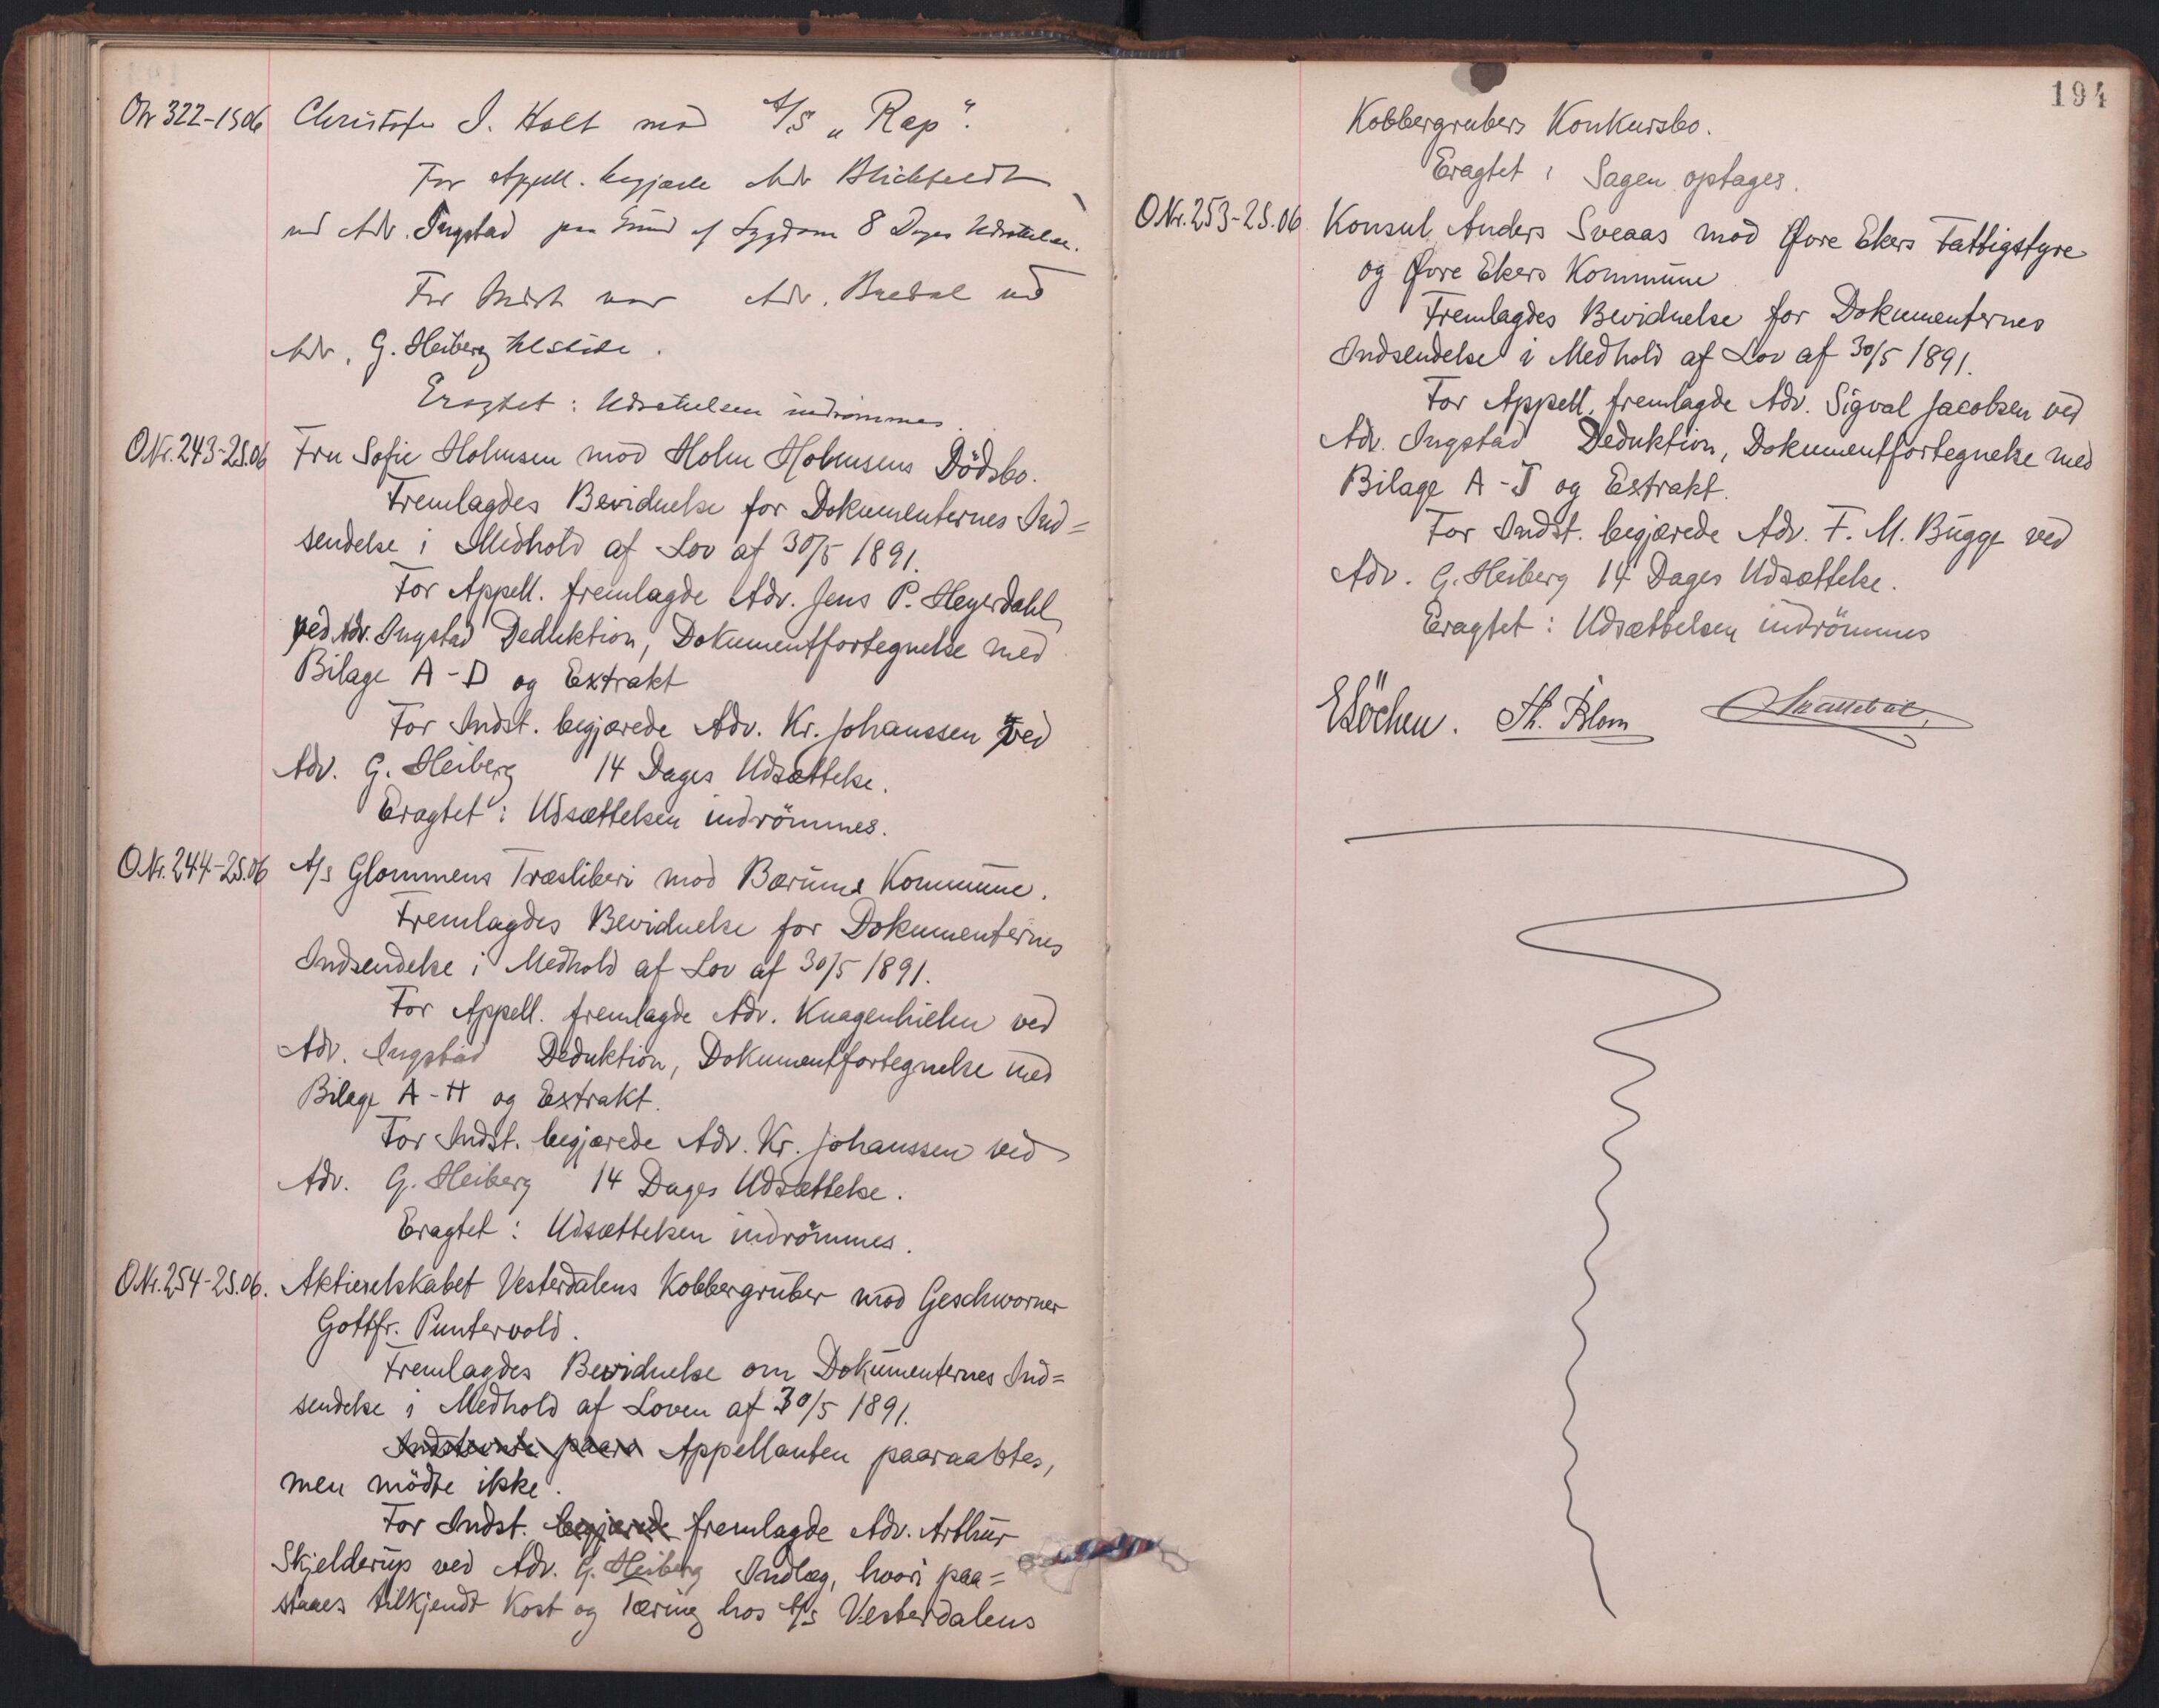 ONr 322-1S06 Christofer I. Holt mod A/S „Rap“.
For Appell. begjærte Adv Blichfeldt
ved Adv. Ingstad paa Grund af Sygdom 8 Dages Udsættelse.
For Indst var Adv. Bredal ved
Adv. G. Heiberg tilstede.
Eragtet: Udsættelsen indrömmes.
O.Nr. 243-2S.06 Fru Sofie Holmsen mod Holm Holmsens Dödsbo.
Fremlagdes Bevidnelse for Dokumenternes Ind=
sendelse i Medhold af Lov af 30/5 1891.
For Appell. fremlagde Adv. Jens P. Heyerdahl
ved Adv. Ingstad Deduktion, Dokumentfortegnelse med
Bilage A-D og Extrakt
For Indst. begjærede Adv. Kr. Johanssen ved
Adv. G. Heiberg 14 Dages Udsættelse.
Eragtet: Udsættelsen indrömmes.
O.Nr. 244-2S.06 A/s Glommens Træsliberi mod Bærums Kommune.
Fremlagdes Bevidnelse for Dokumenternes
Indsendelse i Medhold af Lov af 30/5 1891.
For Appell. fremlagde Adv. Knagenhielm ved
Adv. Ingstad Deduktion, Dokumentfortegnelse med
Bilage A-H og Extrakt.
For Indst. begjærede Adv. Kr. Johanssen ved
Adv. G. Heiberg 14 Dages Udsættelse.
Eragtet: Udsættelsen indrömmes.
O.Nr. 254-2S.06. Aktieselskabet Vesterdalens Kobbergruber mod Geschworner
Gottfr. Puntervold.
Fremlagdes Bevidnelse om Dokumenternes Ind=
sendelse i Medhold af Loven af 30/5 1891.
Indstevnte paara Appellanten paaraabtes,
men mödte ikke.
For Indst. begjærede fremlagde Adv. Arthur
Skjelderup ved Adv. G. Heiberg Indlæg, hvori paa=
staaes tilkjendt Kost og Tæring hos A/s Vesterdalens
194
Kobbergrubers Konkursbo.
Eragtet: Sagen optages.
O.Nr. 253-2S.06 Konsul Anders Sveaas mod Øvre Ekers Fattigstyre
og Øvre Ekers Kommune
Fremlagdes Bevidnelse for Dokumenternes
Indsendelse i Medhold af Lov af 30/5 1891.
For Appell. fremlagde Adv. Sigval Jacobsen ved
Adv. Ingstad Deduktion, Dokumentfortegnelse med
Bilage A-J og Extrakt.
For Indst. begjærede Adv. F. M. Bugge ved
Adv. G. Heiberg 14 Dages Udsættelse.
Eragtet: Udsættelsen indrömmes
E Löchen. Th. Blom